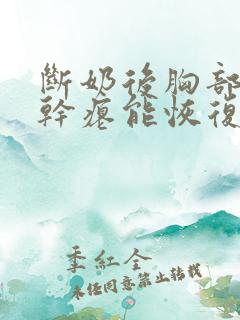 斷奶後胸部
幹癟能恢復
季紅全
未經同意禁止轉載